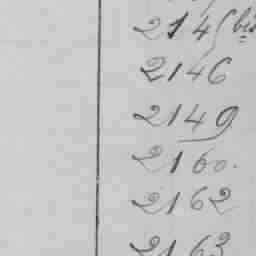 2145 bis
2146
2149
2160.
2162
2163